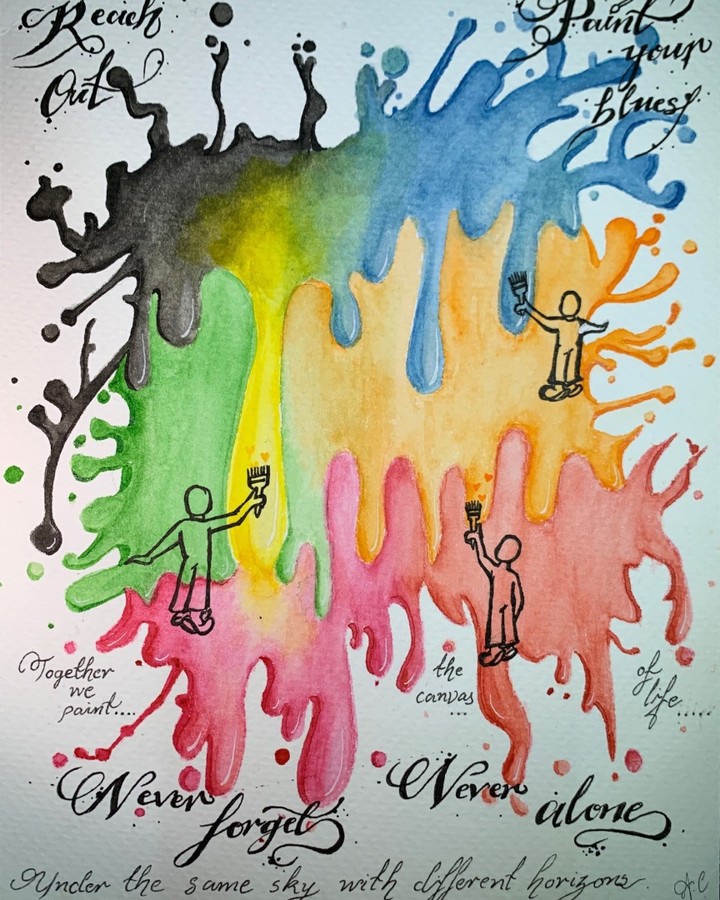 Reach
Out
Paint
your
blues
Together
we
paint....
the
canvas
...
of
life.....
Never
forget
Never
alone
Under the same sky with different horizons